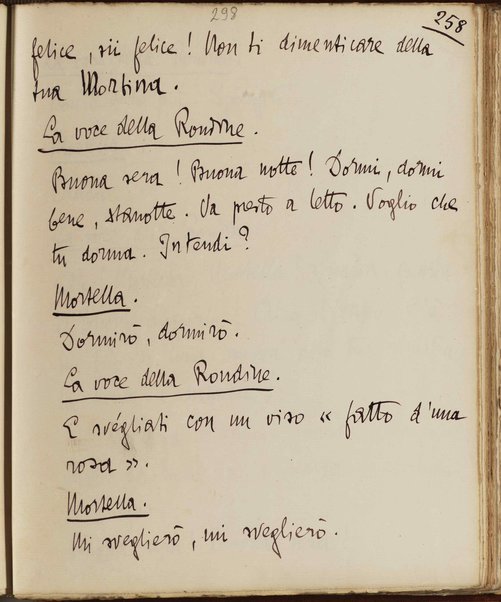 298
258
felice, sii felice! Non ti dimenticare della
tua Mortina.
La voce della Rondine.
Buona sera! Buona notte! Dormi, dormi
bene, stanotte. Va presto a letto. Voglio che
tu dorma. Intendi?
Mortella.
Dormirò, dormirò.
La voce della Rondine.
E svégliati con un viso « fatto d'una
rosa ».
Mortella.
Mi sveglierò, mi sveglierò.